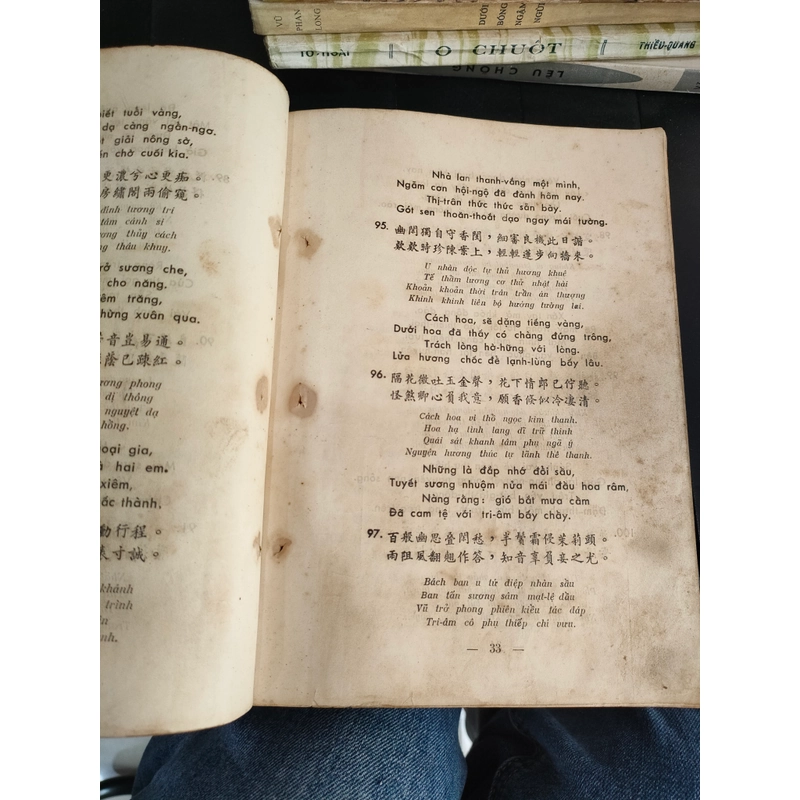 VŨ
PHAN
LONG
DƯỚI
BÓNG
NGẬM
NGÙI
TÔ-HOÀI
Ô CHUỘT
THIỀU-QUANG
LỀU CHÕNG
tuổi vàng,
dạ càng ngồn-nga.
giải nông sờ,
chờ cuối kia.
更濃兮心更痴。
房繡閣雨偷窺。
đình tương tri
tâm cánh si
thủy cách
thâu khuy.
sương che,
cho năng.
trăng,
xuân qua.
音豈易通。
蔭已疎紅。
phong
dị thông
nguyệt dạ
hồng.
gia,
hai em.
xiêm,
thành.
行程。
寸誠。
khánh
trình
Nhà lan thanh-vắng một mình,
Ngẫm cơn hội-ngộ đã đành hôm nay.
Thị-trân thức thức sẵn bày,
Gót sen thoăn-thoắt dạo ngay mái tường.
95. 幽閨獨自守香閨，細審良機此日諧。
欵欵時珍陳案上，輕輕蓮步向牆來。
U nhân độc tự thủ hương khuê
Tế thẩm lương cơ thử nhật hài
Khoản khoản thời trân trần án thượng
Khinh khinh liên bộ hướng tường lai.
Cách hoa, sẽ dặng tiếng vàng,
Dưới hoa đã thấy có chàng đứng trông,
Trách lòng hờ-hững với lòng.
Lửa hương chốc để lạnh-lùng bấy lâu.
96. 隔花微吐玉金聲，花下情郎已佇聽。
怪煞卿心負我意，願香倐似冷凄清。
Cách hoa vi thổ ngọc kim thanh.
Hoa hạ tình lang dĩ trữ thính
Quái sát khanh tâm phụ ngã ý
Nguyện hương thúc tự lãnh thê thanh.
Những là đắp nhớ đổi sầu,
Tuyết sương nhuộm nửa mái đầu hoa râm,
Nàng rằng: gió bắt mưa cầm
Đã cam tệ với tri-âm bấy chầy.
97. 百般幽思叠閒愁，半鬢霜侵茉莉頭。
雨阻風翻翹作答，知音辜負妾之尤。
Bách ban u tứ điệp nhàn sầu
Ban tấn sương sâm mạt-lệ dầu
Vũ trở phong phiên kiều tác đáp
Tri-âm cô phụ thiếp chi vưu.
— 33 —